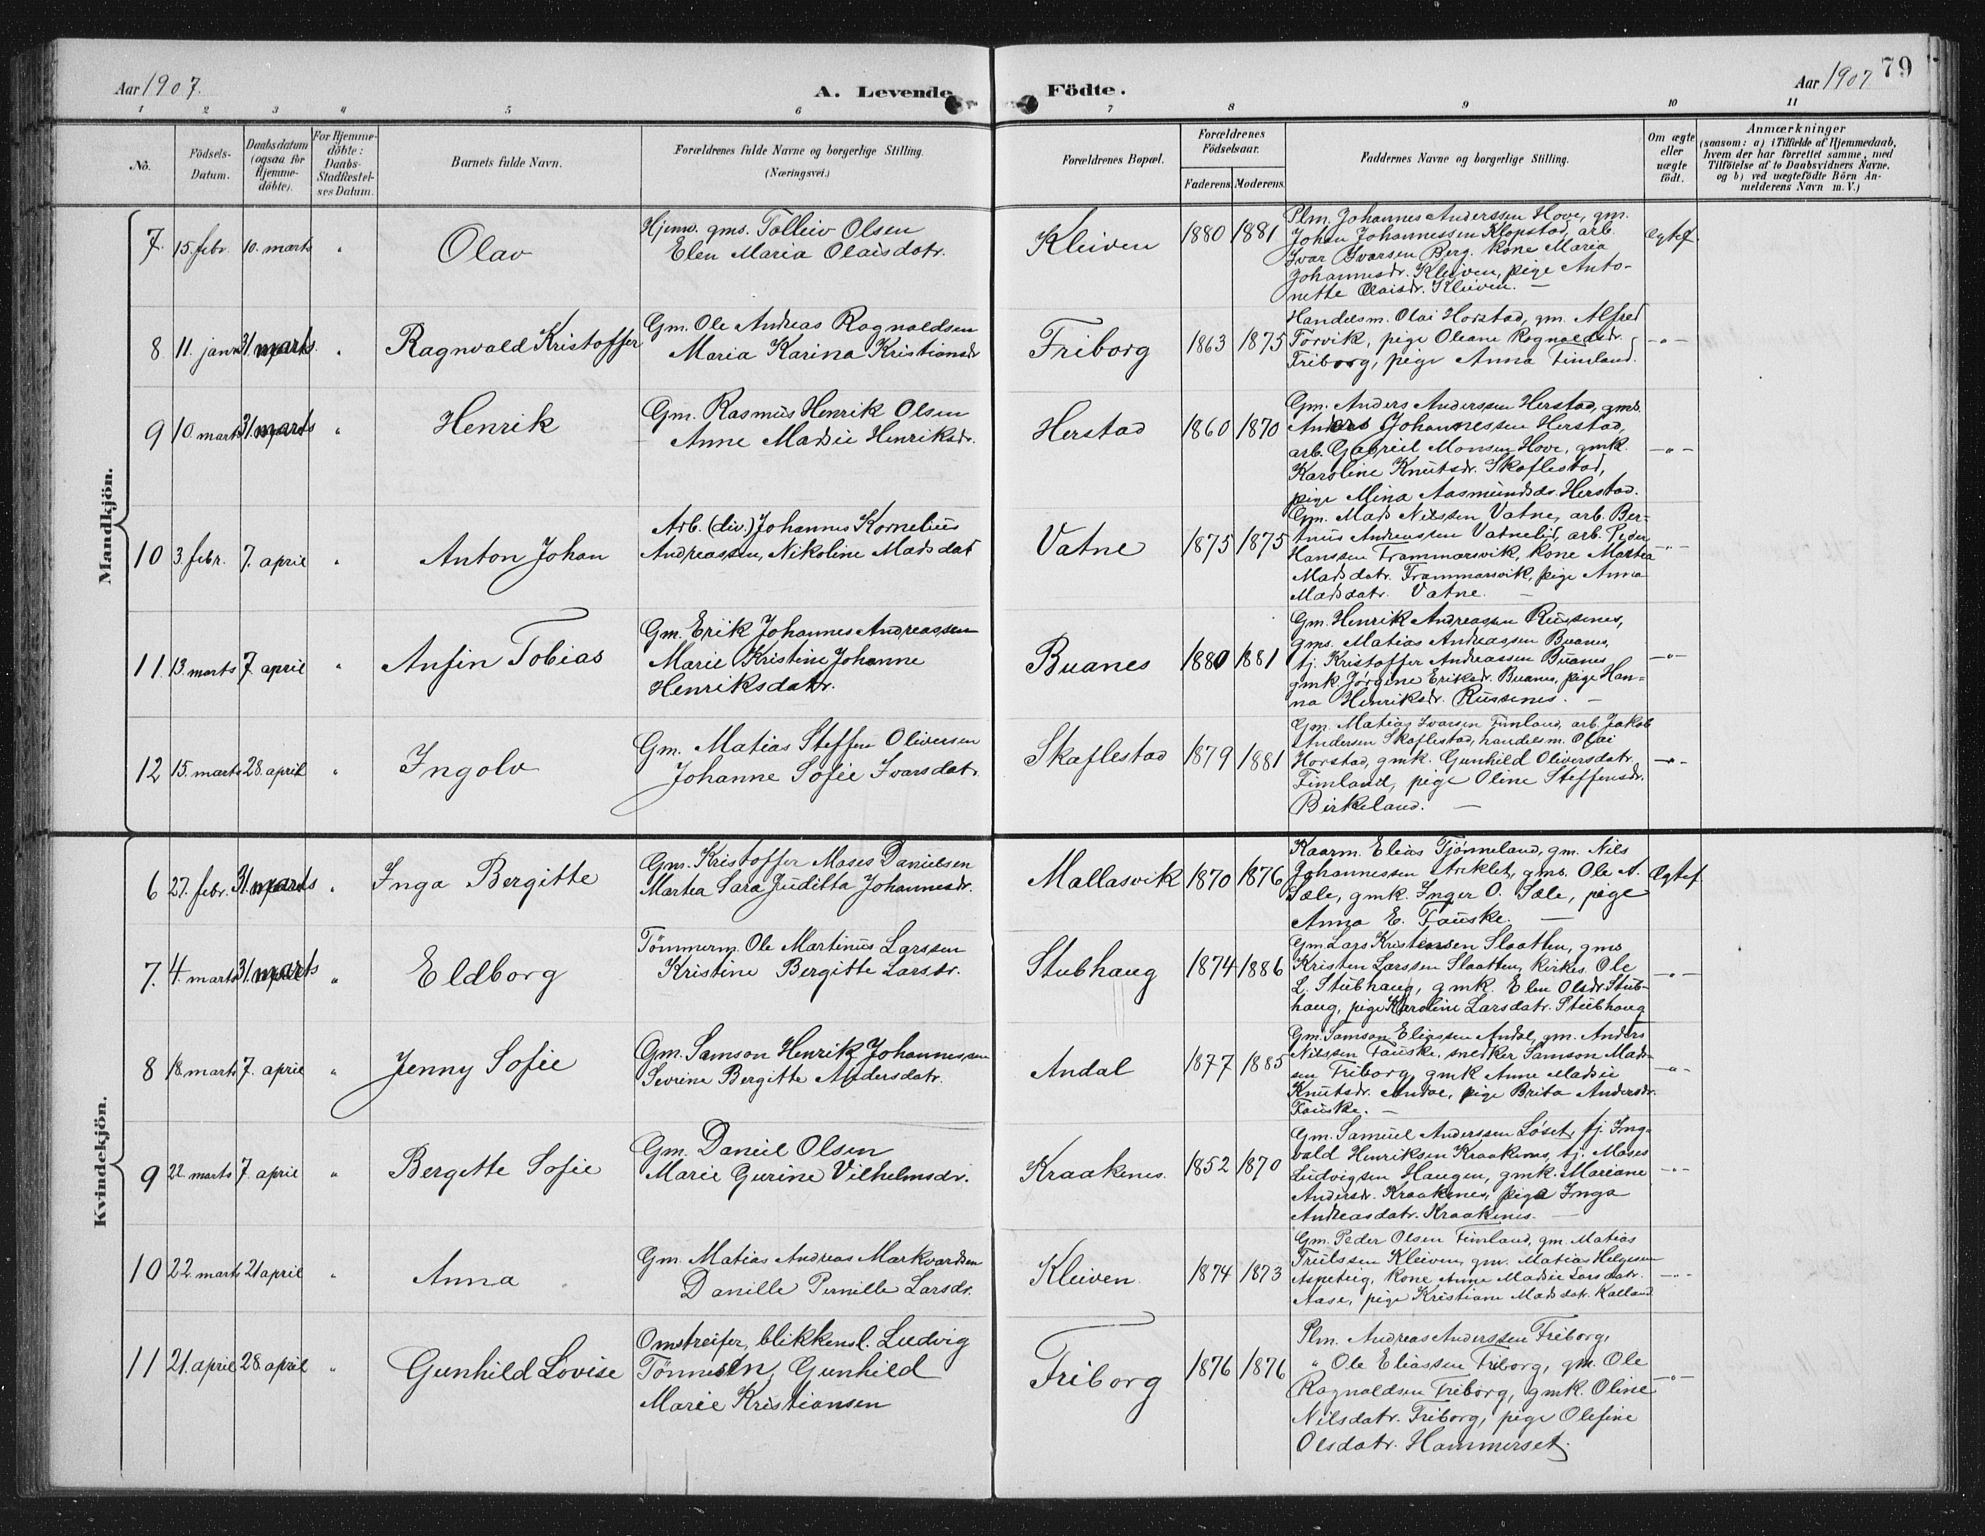 Aar 1907.
A. Levende Födte.
Aar 1907
79
1 2 3 4 5 6 7 8 9 10 11
No.
Födsels-Datum.
Daabsdatum (ogsaa for Hjemme-döbte).
For Hjemme-döbte: Daabs-Stadfæstel-ses Datum.
Barnets fulde Navn.
Forældrenes fulde Navne og borgerlige Stilling.
(Næringsvei.)
Forældrenes Bopæl.
Forældrenes Födselsaar.
Faderens. Moderens.
Faddernes Navne og borgerlige Stilling.
Om ægte eller uægte födt.
Anmærkninger
(saasom: a) i Tilfælde af Hjemmedaab,
hvem der har forrettet samme, med
Tilföielse af to Daabsvidners Navne,
og b) ved uægtefödte Börn An-
melderens Navn m. V.)
Mandkjön.
7. 15. febr. 10. marts " Olav
Hjemv. gms. Tolleiv Olsen
Elen Maria Olaisdatr.
Kleiven 1880 1881
Plm. Johannes Anderssen Hove, gm.
Johan Johannessen Klopstad, arb.
Ivar Ivarsen Berg, kone Maria
Johannesdr. Kleiven, pige Anto-
nette Olaisdr. Kleiven. —
Ægtef.
8 11. janv 31. marts. " Ragnvald Kristoffer
Gm. Ole Andreas Ragnvaldsen
Maria Karina Kristiansdr
Friborg 1863 1875
Handelsm. Olai Horstad, gm. Alfred
Torvik, pige Oleane Ragnvaldsdr.
Friborg, pige Anna Timland.
—"—
9 10. marts 31. marts " Henrik
Gm. Rasmus Henrik Olsen
Anne Madsie Henriksdr.
Herstad 1860 1870
Gm. Anders Anderssen Herstad, gms.
Anders Johannessen Herstad,
arb. Gabriel Monsen Hove, gmk.
Karoline Knutsdr. Skaflestad,
pige Mina Aasmundsdr. Herstad.
—"—
10 3. febr. 7. april " Anton Johan
Arb. (div.) Johannes Kornelius
Andreassen, Nikoline Madsdat
Vatne 1875 1875
Gm. Mads Nilssen Vatne, arb. Ber-
tnus Andreassen Vatnelid, arb. Peder
Hanssen Frammarsvik, kone Martea
Madsdatr. Frammarsvik, pige Anna
Madsdatr. Vatne. —
—"—
11. 13. marts 7 april " Anfin Tobias
Gm. Erik Johannes Andreassen
Marie Kristine Johanne
Henriksdatr.
Buanes 1880 1881
Gm. Henrik Andreassen Russenes,
gms. Matias Andreassen Buanes,
tj. Kristoffer Andreassen Buanes
gmk. Jörgine Eriksdr. Buanes, pige Han-
na Henriksdr. Russenes. —
—"—
12 15. marts 28. april " Ingolv
Gm. Matias Steffen Oliversen
Johanne Sofie Ivarsdatr.
Skaflestad 1879 1881
Gm. Matias Ivarsen Timland, arb. Jakob
Andersen Skaflestad, handelsm. Olai
Horstad, gmk. Gunhild Oliversdatr.
Timland, pige Oline Steffensdr.
Birkeland. —
—"—
Kvindekjön.
6 27. febr. 31. marts " Inga Bergitte
Gm. Kristoffer Moses Danielsen
Martea Sara Juditta Johannesdr.
Mallasvik 1870 1876
Kaarm. Elias Tjønneland, gm. Nils
Johannessen Areklet, gms. Ole A.
Sæle, gmk. Inger O. Sæle, pige
Anna E. Fauske. —
Ægtef
7. 4. marts 31. marts " Eldborg
Tömmerm. Ole Martinus Larssen
Kristine Bergitte Larsdr.
Stubhaug 1874 1886
Gm. Lars Kristensen Slaatten, gms
Kristen Larssen Slaatten, kirkes. Ole
L. Stubhaug, gmk. Elen Olsdr. Stub-
haug, pige Karoline Larsdatr. Stubhaug
—"—
8 18. marts 7. april " Jenny Sofie
Gm. Samson Henrik Johannessen
Severine Bergitte Andersdatr.
Andal 1877 1885
Gm. Samson Eliassen Andal, gm. Anders
Nilssen Fauske, snedker Samson Mad-
sen Friborg, gmk Anne Madsie
Knutsdr. Andal, pige Brita Andersdr.
Fauske. —
—"—
9 22. marts 7. april " Bergitte Sofie
Gm. Daniel Olsen
Marie Gurine Vilhelmsdr.
Kraakenes. 1852 1870
Gm. Samuel Anderssen Løset, tj. Ing-
vald Henriksen Kraakenes, tj. Moses
Ludvigsen Haugen, gmk. Mariane
Andersdr. Kraakenes, pige Inga
Andreasdatr. Kraakenes. —
—"—
10 22. marts 21 april " Anna
Gm. Matias Andreas Markvardsen
Danille Pernille Larsdr.
Kleiven 1874 1873
Gm. Peder Olsen Timland, gm. Matias
Trulssen Kleiven, gm. Matias Helgesen
Aspeteig, kone Anne Madsie Larsdatr.
Aase, pige Kristiane Madsdatr. Kalland
—"—
11 21. april 28. april " Gunhild Lovise
Omstreifer, blikkensl. Ludvig
Tönnesen, Gunhild
Marie Kristiansen
Friborg 1876 1876
Plm. Andreas Anderssen Friborg,
" Ole Eliassen Friborg, gm. Ole
Ragnvaldsen Friborg, gmk. Oline
Nilsdatr. Friborg, pige Olefine
Olsdatr. Hammerset.
—"—